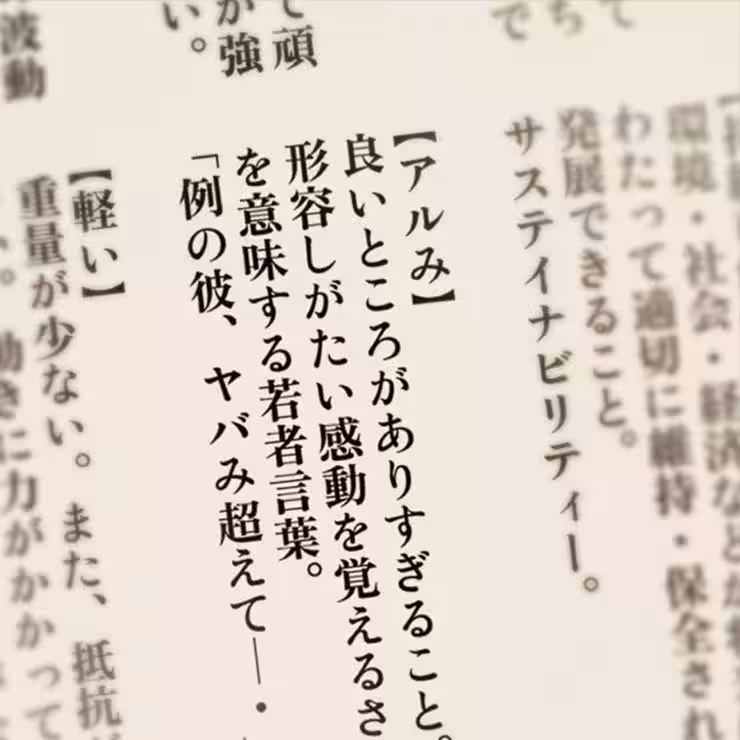 て
ち
で
環境・社会・経済などが
わたって適切に維持・保全され
発展できること。
サステイナビリティー。
【アルみ】
良いところがありすぎること。
形容しがたい感動を覚えるさ
を意味する若者言葉。
「例の彼、ヤバみ超えて―・
て頑
が強
い。
波動
【軽い】
重量が少ない。また、抵抗
動きに力がかかって